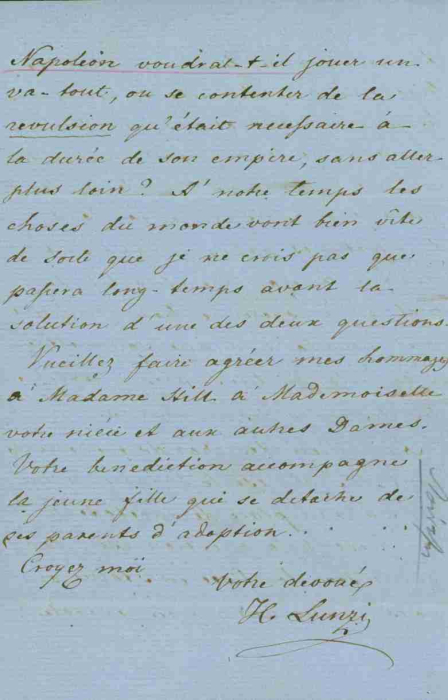 Napoléon voudrat-t-il jouer un
va-tout, ou se contenter de la
revulsion qu'était necessaire à
la durée de son empire, sans aller
plus loin? A' notre temps les
choses du monde vont bien vîte
de sorte que je ne crois pas que
passera long-temps avant la
solution d'une des deux questions.
Vueillez faire agréer mes hommages
a' Madame Hill a' Mademoiselle
votre niéce et aux autres Dames.
Votre benediction accompagne
la jeune fille qui se detache de
ses parents d'adoption.
Croyez moi
votre devoué
H. Lunzi